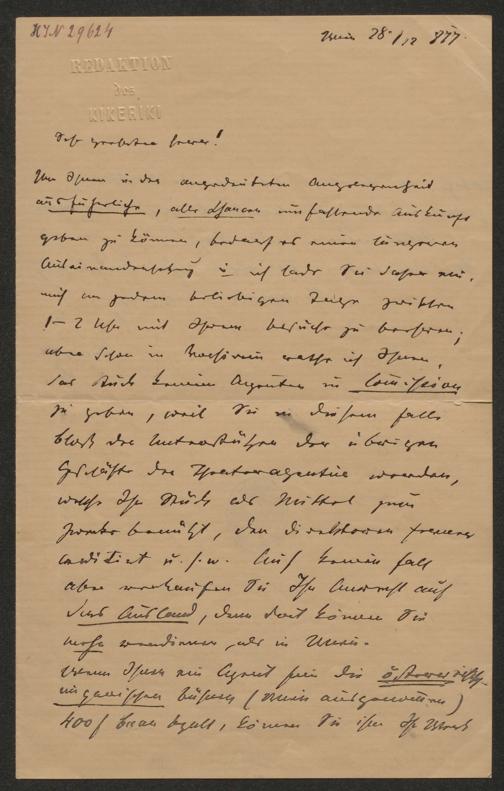 HIN 29624
Wien 28./12 877.
REDAKTION
des
KIKERIKI
Sehr geehrter Herr!
Um Ihnen in der angedeuteten Angelegenheit
ausführliche, alle Chancen umfassende Auskunft
geben zu können, bedarf es einer längeren
Auseinandersetzung u ich lade Sie daher ein,
mich an jedem beliebigen Tage zwischen
1–2 Uhr mit Ihrem Besuche zu beehren;
aber schon im Vorhinein rathe ich Ihnen,
das Stück keinem Agenten in Comission
zu geben, weil Sie in diesem Falle
bloß das der übrigen
Geschäfte der Theateragentie werden,
welche Ihr Stück als Mittel zum
Zwecke benützt, den Direktoren
u. s. w. Auf keinen Fall
aber verkaufen Sie Ihr Anrecht auf
das Ausland, denn dort können Sie
mehr verdienen, als in Wien.
Wenn Ihnen ein Agent für die österreichisch-
ungarischen Bühnen (Wien ausgenommen)
400 f baar bezalt, können Sie ihm Ihr Werk